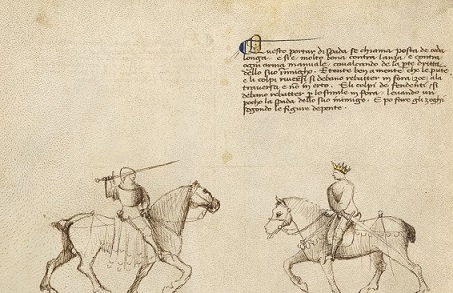 Questo portar di spada se chiama posta de coda
longa. e si è molto bona contra lanza. e contra
ogni arma manuale. cavalcando de la pte dritta
dello suo inimigho. E tente ben a mente che le pũte
e li colpi riversi si debano rebatter in fora zoè ala
traversa. e nõ in erto. E li colpi de fendenti si
debano rebatter p lo simile in fora. levando un
pocho la spada dello suo inimigo. E po fare gli zoghi
segondo le figure depente.